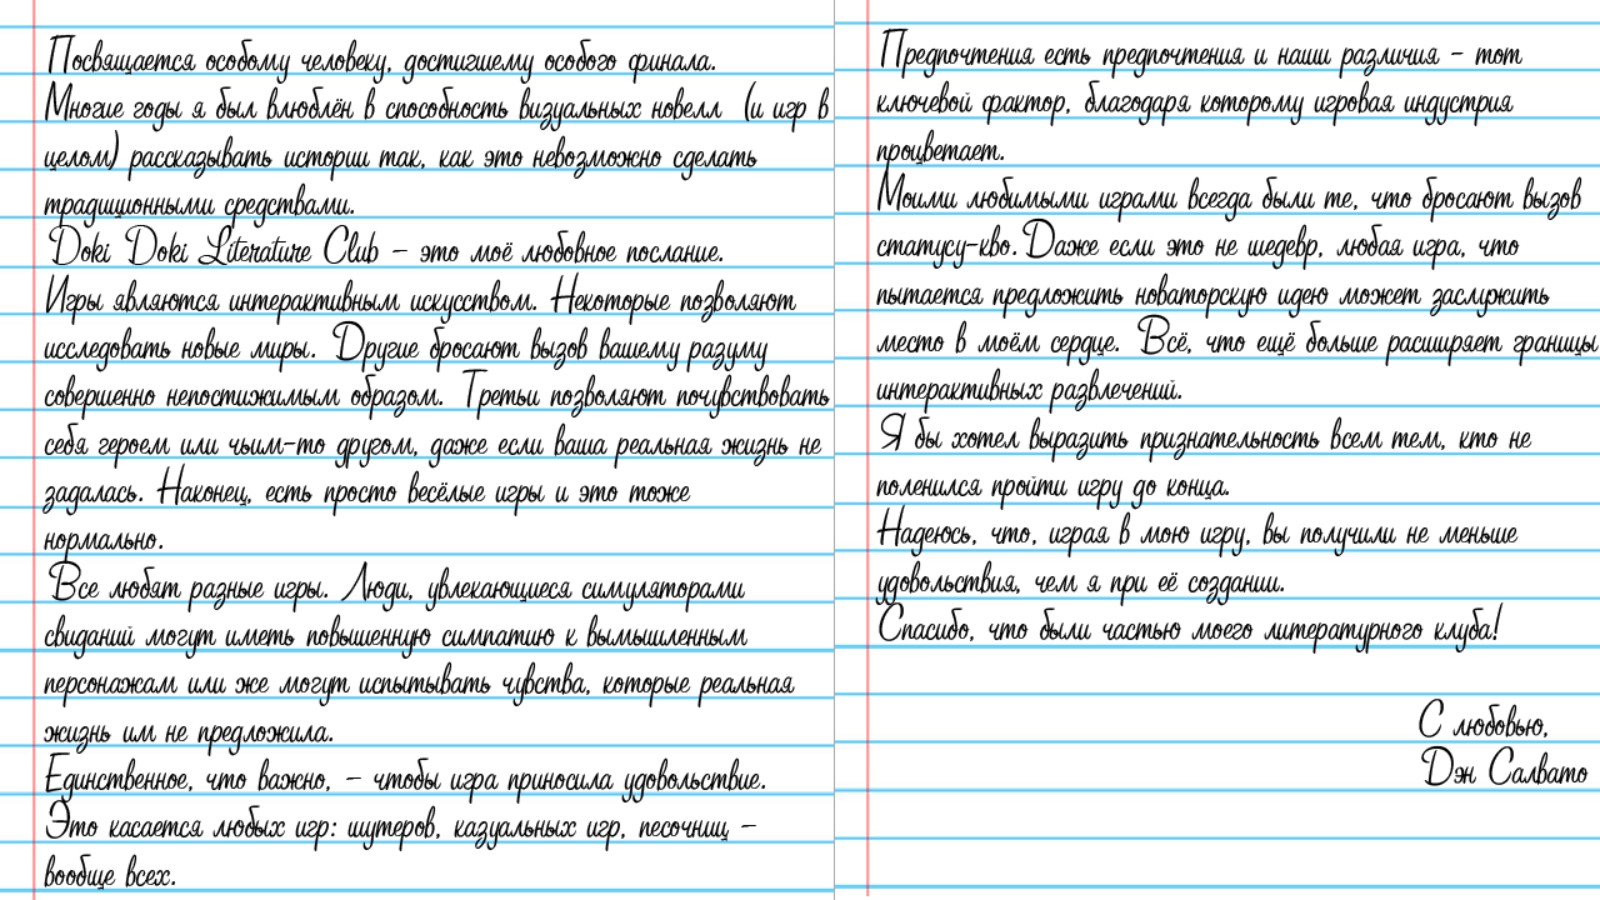 Посвящается особому человеку, достигшему особого финала.
Многие годы я был влюблён в способность визуальных новелл (и игр в
целом) рассказывать истории так, как это невозможно сделать
традиционными средствами.
Doki Doki Literature Club – это моё любовное послание.
Игры являются интерактивным искусством. Некоторые позволяют
исследовать новые миры. Другие бросают вызов вашему разуму
совершенно непостижимым образом. Третьи позволяют почувствовать
себя героем или чьим-то другом, даже если ваша реальная жизнь не
задалась. Наконец, есть просто весёлые игры и это тоже
нормально.
Все любят разные игры. Люди, увлекающиеся симуляторами
свиданий могут иметь повышенную симпатию к вымышленным
персонажам или же могут испытывать чувства, которые реальная
жизнь им не предложила.
Единственное, что важно, – чтобы игра приносила удовольствие.
Это касается любых игр: шутеров, казуальных игр, песочниц –
вообще всех.
Предпочтения есть предпочтения и наши различия – тот
ключевой фактор, благодаря которому игровая индустрия
процветает.
Моими любимыми играми всегда были те, что бросают вызов
статусу-кво. Даже если это не шедевр, любая игра, что
пытается предложить новаторскую идею может заслужить
место в моём сердце. Всё, что ещё больше расширяет границы
интерактивных развлечений.
Я бы хотел выразить признательность всем тем, кто не
поленился пройти игру до конца.
Надеюсь, что, играя в мою игру, вы получили не меньше
удовольствия, чем я при её создании.
Спасибо, что были частью моего литературного клуба!
С любовью,
Дэн Салвато